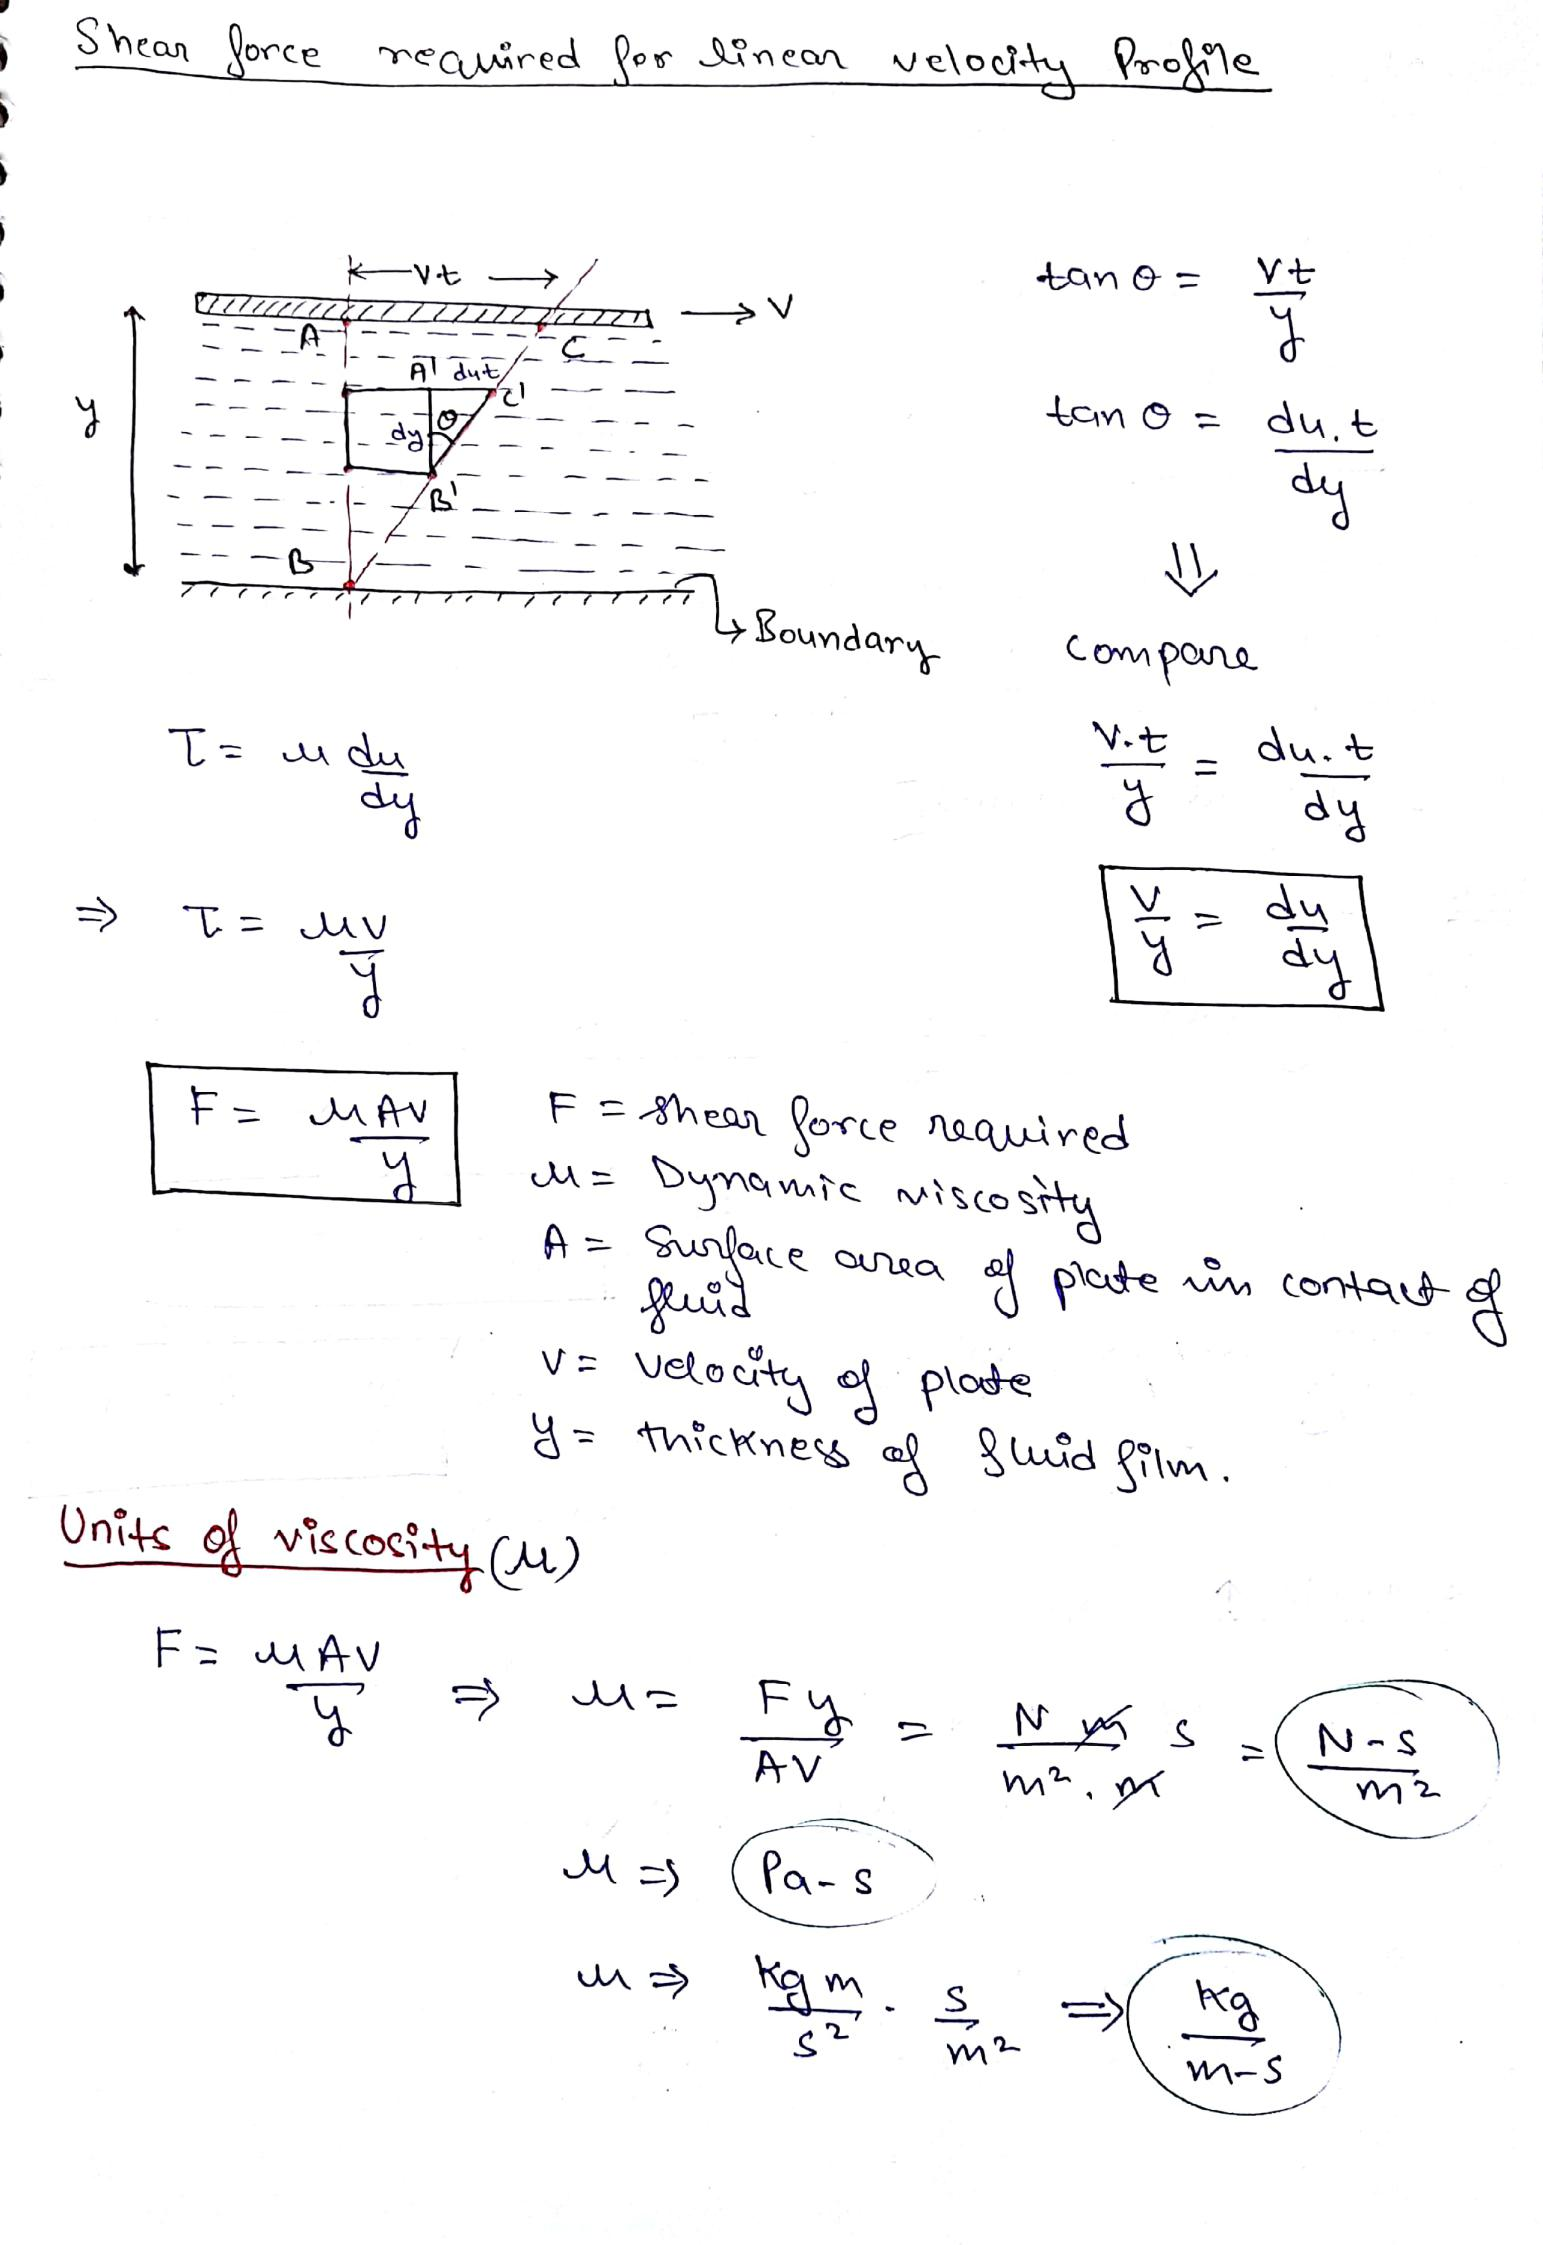 Shear force required for linear velocity Profile
Vt
V
A
C
A' dut
C'
θ
dy
y
B'
B
Boundary
tan θ = Vt/y
tan θ = du.t/dy
⇓
compare
V.t/y = du.t/dy
V/y = du/dy
τ = μ du/dy
⇒ τ = μV/y
F = μAV/y
F = shear force required
μ = Dynamic viscosity
A = Surface area of plate in contact of
fluid
V = velocity of plate
y = thickness of fluid film.
Units of viscosity (μ)
F = μAV/y ⇒ μ = Fy/AV = N m s/m². m = N-s/m²
μ ⇒ Pa-s
μ ⇒ Kg m/s² . s/m² ⇒ Kg/m-s